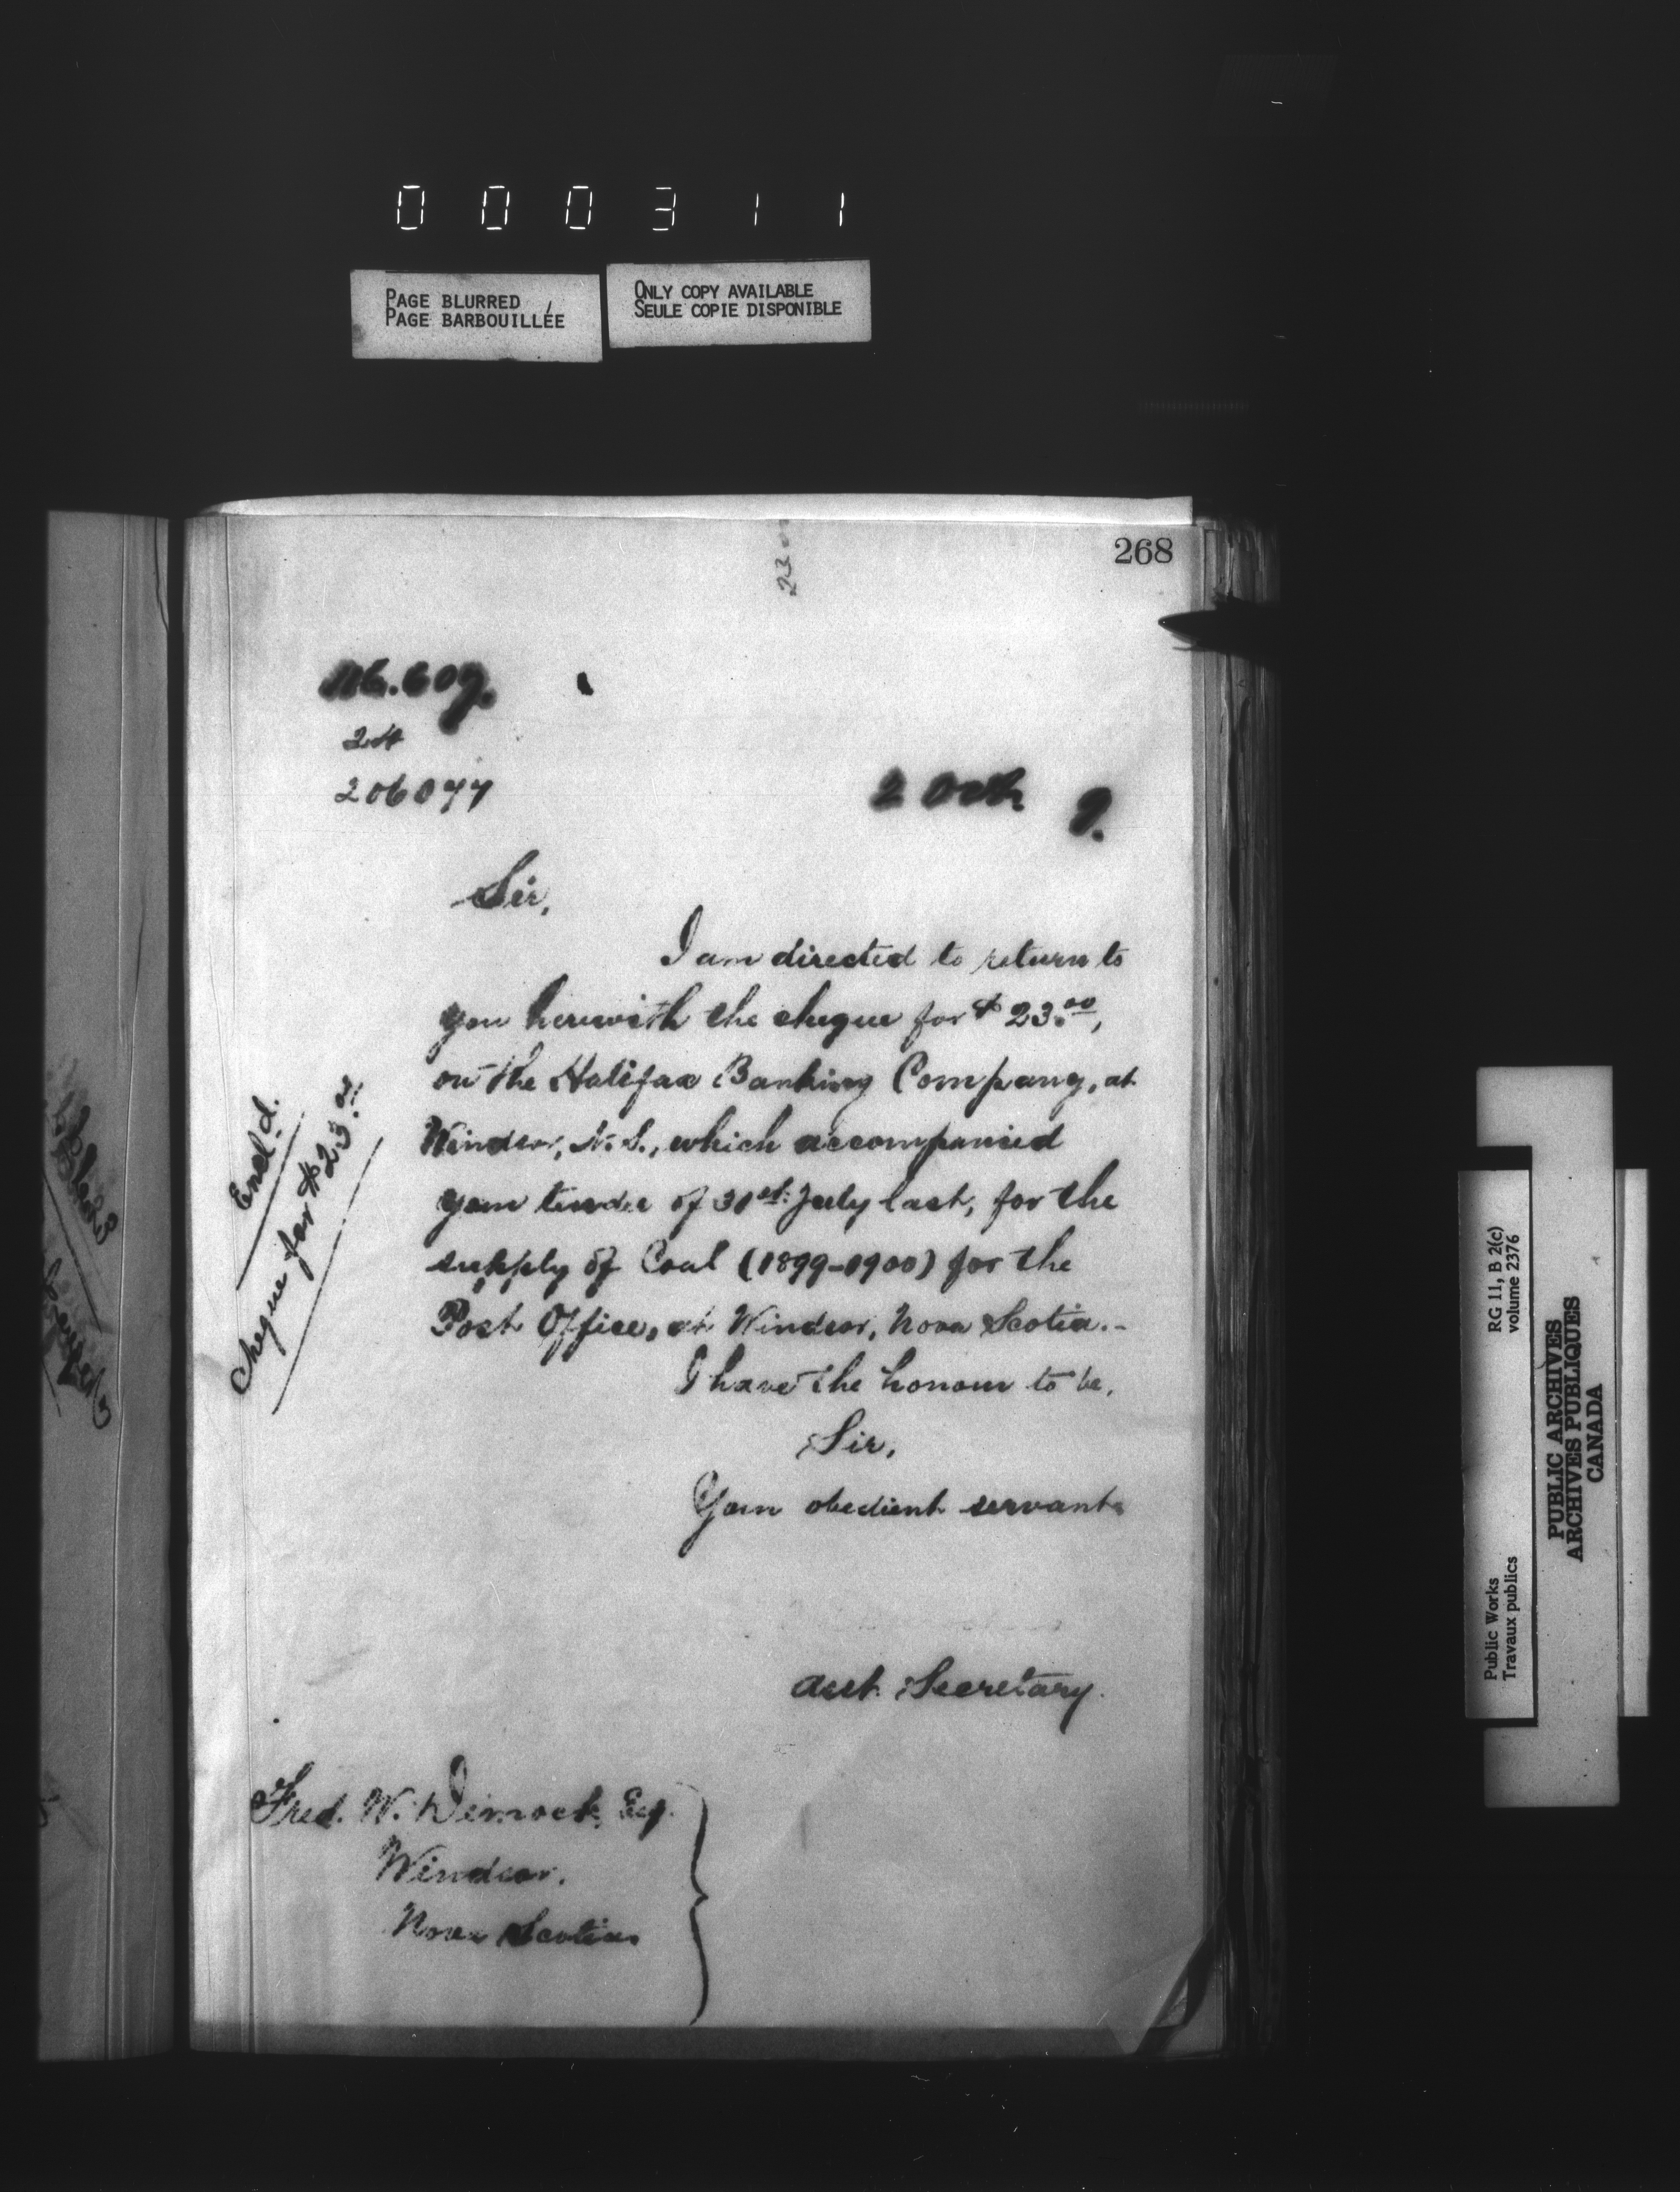 000311
PAGE BLURRED
PAGE BARBOUILLÉE
ONLY COPY AVAILABLE
SEULE COPIE DISPONIBLE
268
23
24
206077
2 Octr 9.
Sir,
I am directed to return to
you herewith the cheque for $23.00,
on the Halifax Banking Company, at
Windsor, N.S., which accompanied
your tender of 31st July last, for the
supply of Coal (1899-1900) for the
Post Office, at Windsor, Nova Scotia.-
I have the honour to be,
Sir,
Your obedient servant
Asst. Secretary.
Fred. W. Dimock, Esq.
Windsor,
Nova Scotia.
Encld.
Cheque for $23.00
Public Works
Travaux publics
RG 11, B 2(c)
volume 2376
PUBLIC ARCHIVES
ARCHIVES PUBLIQUES
CANADA